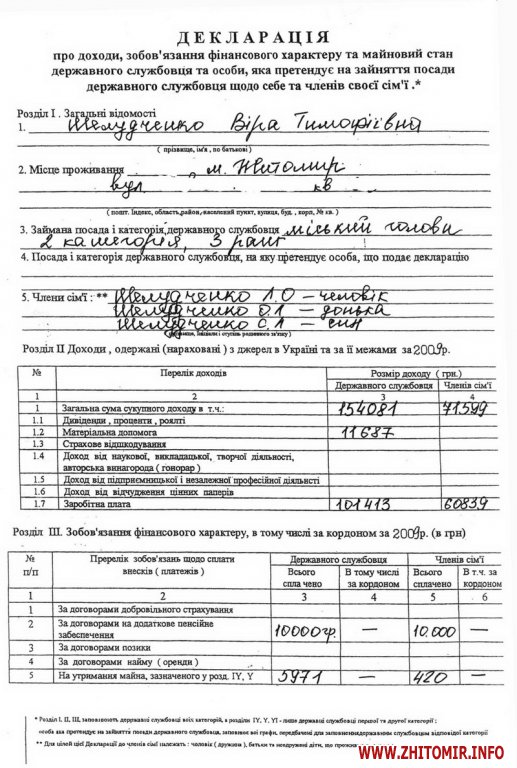 ДЕКЛАРАЦІЯ
про доходи, зобов'язання фінансового характеру та майновий стан
державного службовця та особи, яка претендує на зайняття посади
державного службовця щодо себе та членів своєї сім'ї .*
Розділ I . Загальні відомості
1. Шелудченко Віра Тимофіївна
( прізвище, ім'я , по батькові )
2. Місце проживання , м. Житомир
вул. кв
( пошт. Індекс, область,район,населений пункт, вулиця, буд. , корп, № кв. )
3. Займана посада і категорія державного службовця міський голови
2 категорія, 3 ранг
4. Посада і категорія державного службовця, на яку претендує особа, що подає декларацію
5. Члени сім'ї : ** Шелудченко І.О – чоловік
Шелудченко О.І – донька
Шелудченко С.І – син
Розділ II Доходи , одержані (нараховані ) з джерел в Україні та за її межами за 2009р.
№ Перелік доходів Розмір доходу ( грн.)
Державного службовця Членів сім'ї
1 2 3 4
1 Загальна сума сукупного доходу в т.ч.: 154081 71599
1.1 Дивіденди , проценти , роялті
1.2 Матеріальна допомога 11687
1.3 Страхове відшкодування
1.4 Доход від наукової, викладацької, творчої діяльності,
авторська винагорода ( гонорар )
1.5 Доход від підприємницької і незалежної професійної діяльисті
1.6 Доход від відчудження цінних паперів
1.7 Заробітна плата 101413 60839
Розділ III. Зобов'язання фінансового характеру, в тому числі за кордоном за 2009р. (в грн)
№ п/п Пререлік зобов'язань щодо сплати внесків ( платежів ) Державного службовця Членів сім'ї
Всього спла чено В тому числі за кордоном Всього сплачено В т.ч. за кордоном
1 2 3 4 5 6
1 За договорами добровільного страхування
2 За договорами на додаткове пенсійне забезпечення 10000гр. — 10.000 —
3 За договорами позики
4 За договорами найму ( оренди )
5 На утримання майна, зазначеного у розд. IY, Y 5971 — 420 —
* Розділ I, II, III, заповнюють державні службовці всіх категорій, а розділи IY, Y, YI - лише державні службовці першої та другої категорії ;
особа яка претендує на зайняття посади державного службовця, заповнює всі графи, передбачені для заповнення державним службовцем відповідної категорії
** Для цілей цієї Декларації до членів сім'ї належать : чоловік ( дружина ), батьки та неодружені діти, що
WWW.ZHITOMIR.INFO